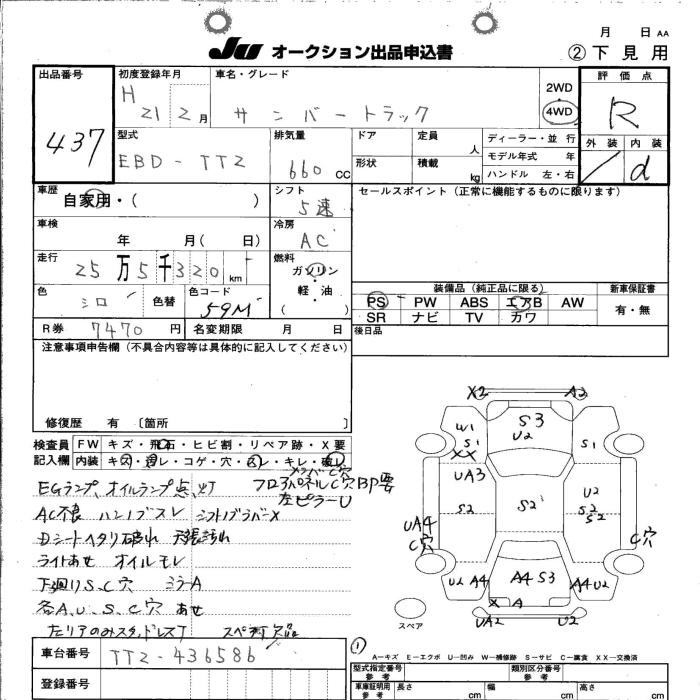 月 日 AA
JU オークション出品申込書 ②下見用
出品番号 初度登録年月 車名・グレード 評価点
437 H 21 2月 サンバートラック 2WD 4WD R
型式 排気量 ドア 定員 人 ディーラー・並 行 外装 内装
EBD-TT2 660 CC 形状 積載 kg モデル年式 年 / d
ハンドル 左・右
車歴 シフト セールスポイント (正常に機能するものに限ります)
自家用・( ) 5速
車検 冷房
年 月( 日) AC
走行 燃料
25万5千320km ガソリン・軽油 ( )
装備品 (純正品に限る) 新車保証書
色 シロ 色替 色コード 59M PS PW ABS エアB AW 有・無
SR ナビ TV カワ
R券 7470円 名変期限 月 日 後日品
注意事項申告欄 (不具合内容等は具体的に記入してください)
修復歴 有 〔箇所 〕
検査員 FW キズ・飛石・ヒビ割・リペア跡・X要
記入欄 内装 キズ・汚レ・コゲ・穴・スレ・キレ・破レ
EGランプ、オイルランプ点灯
AC不良 ハンドブスレ シフトノブラバーX
Dシートヘタリ破れ 天張汚れ
ライトあせ オイルモレ
下廻りS、C穴 ミラーA
各A、U、S、C穴 あせ
C穴BP要
左ピラーU
X2 A2
W1 S3 U2
S1 S1
XX
UA3 U2
S2 S2 S2 S2
UA4 C穴 C穴
U2 A4 A4 S3 A4 U2
X A
UA2 U2
スペア
車台番号 TT2-436586
登録番号
①
A-キズ E-エクボ U-凹み W-補修跡 S-サビ C-腐食 XX-交換済
型式指定番号 参考 類別区分番号 参考
車庫証明用 参考 長さ cm 幅 cm 高さ cm